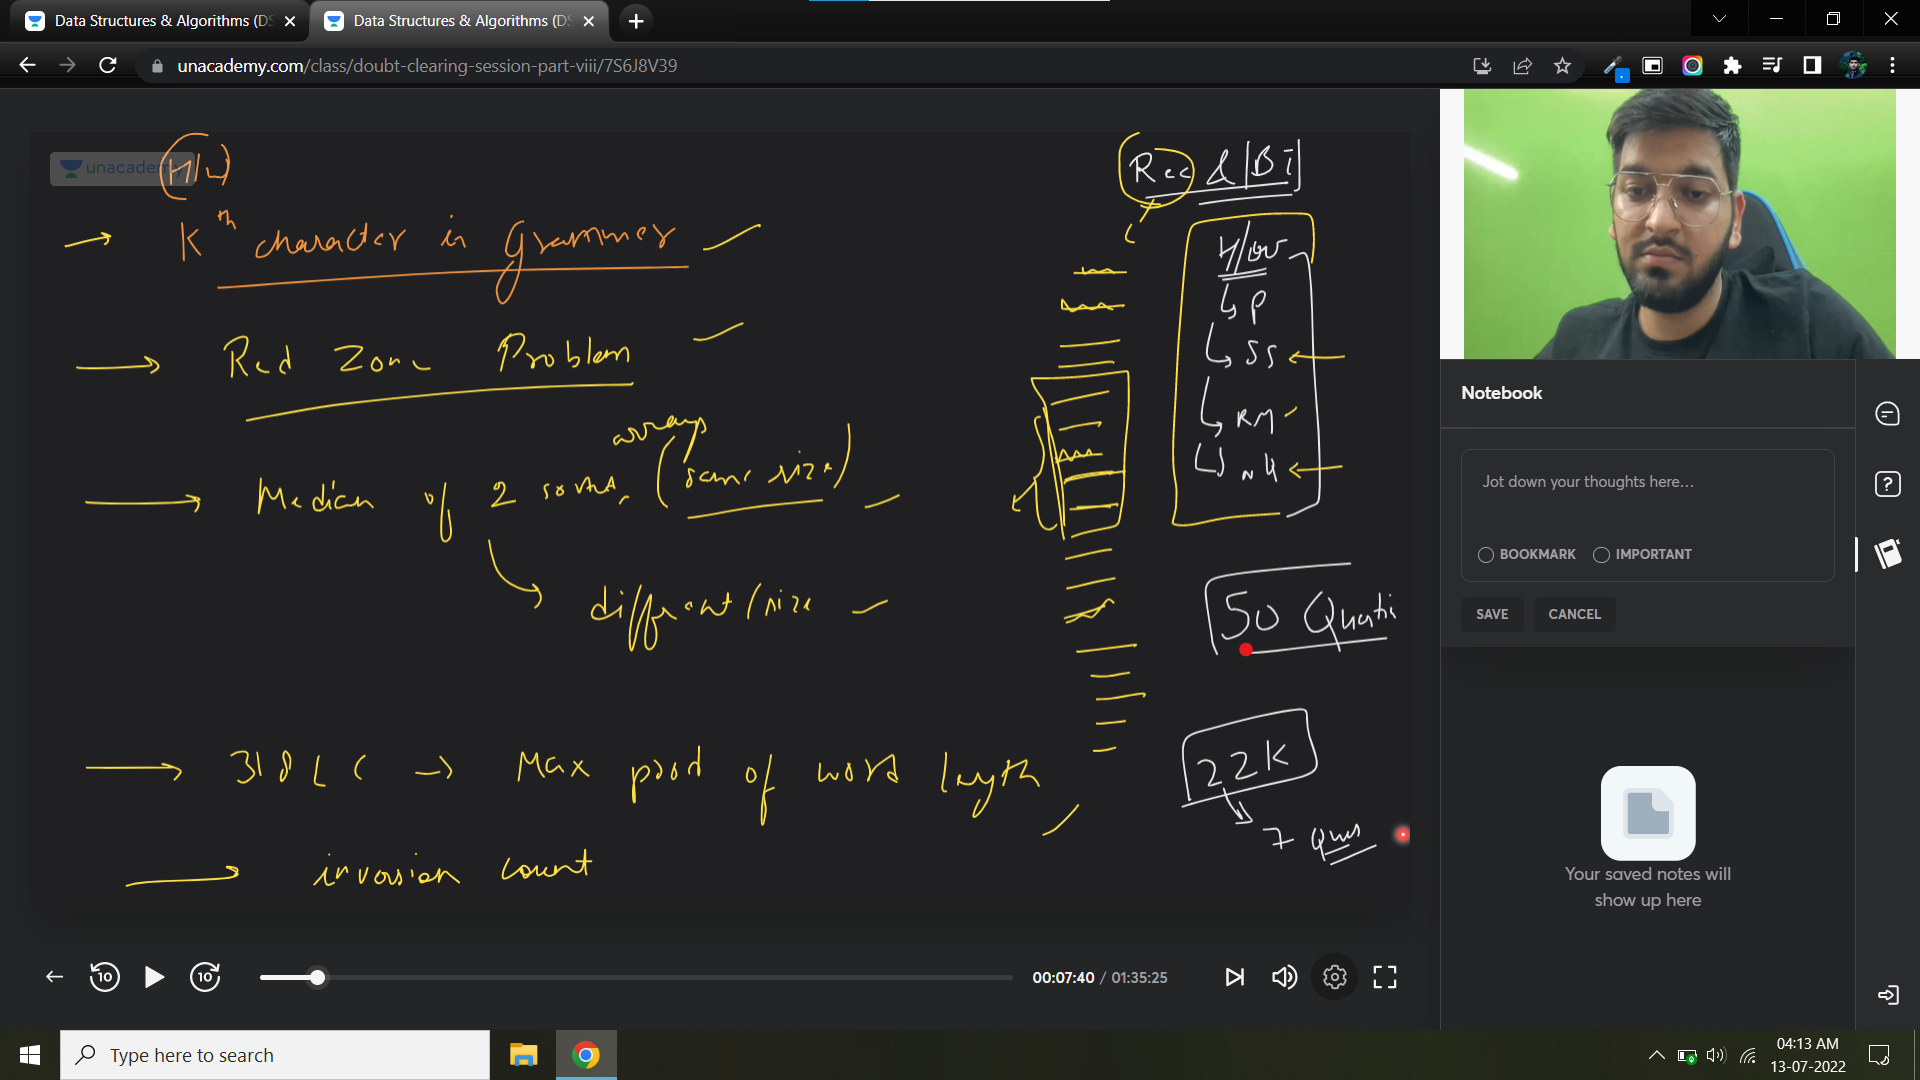 Data Structures & Algorithms (DS
Data Structures & Algorithms (DS
unacademy.com/class/doubt-clearing-session-part-viii/7S6J8V39
unacademy
H/W
Kth character in Grammer
Red Zone Problem
arrays
Median of 2 sorted (same size)
different / size
318 LC → Max prod of word length
invasion count
Rec & BT
H/W
P
SS
RM
NQ
50 Questi
22K
7 Ques
00:07:40 / 01:35:25
10
10
Notebook
Jot down your thoughts here...
BOOKMARK IMPORTANT
SAVE CANCEL
Your saved notes will
show up here
Type here to search
04:13 AM
13-07-2022